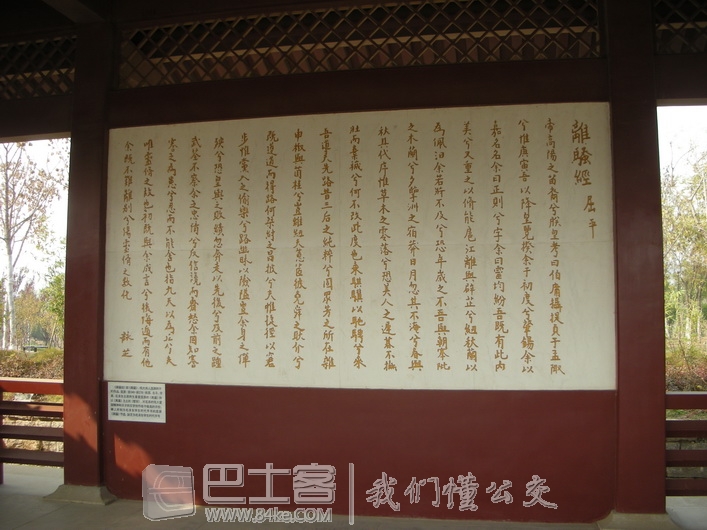 離騷經 屈平
帝高陽之苗裔兮朕皇考曰伯庸攝提貞于孟陬
兮惟庚寅吾以降皇覽揆余于初度兮肇錫余以
嘉名名余曰正則兮字余曰靈均紛吾既有此內
美兮又重之以脩能扈江離與辟芷兮紉秋蘭以
為佩汩余若將不及兮恐年歲之不吾與朝搴阰
之木蘭兮夕攬洲之宿莽日月忽其不淹兮春與
秋其代序惟草木之零落兮恐美人之遲暮不撫
壯而棄穢兮何不改此度也乘騏驥以馳騁兮來
吾道夫先路昔三后之純粹兮固眾芳之所在雜
申椒與菌桂兮豈維紉夫蕙茝彼堯舜之耿介兮
既遵道而得路何桀紂之昌披兮夫惟捷徑以窘
步惟黨人之偷樂兮路幽昧以險隘豈余身之憚
殃兮恐皇輿之敗績忽奔走以先後兮及前王之踵
武荃不察余之忠情兮反信讒而齌怒余固知謇
謇之為患兮忍而不能舍也指九天以為正兮夫
唯靈脩之故也初既與余成言兮後悔遁而有他
余既不難離別兮傷靈脩之數化
巴士客 我们懂公交
www.84ke.com